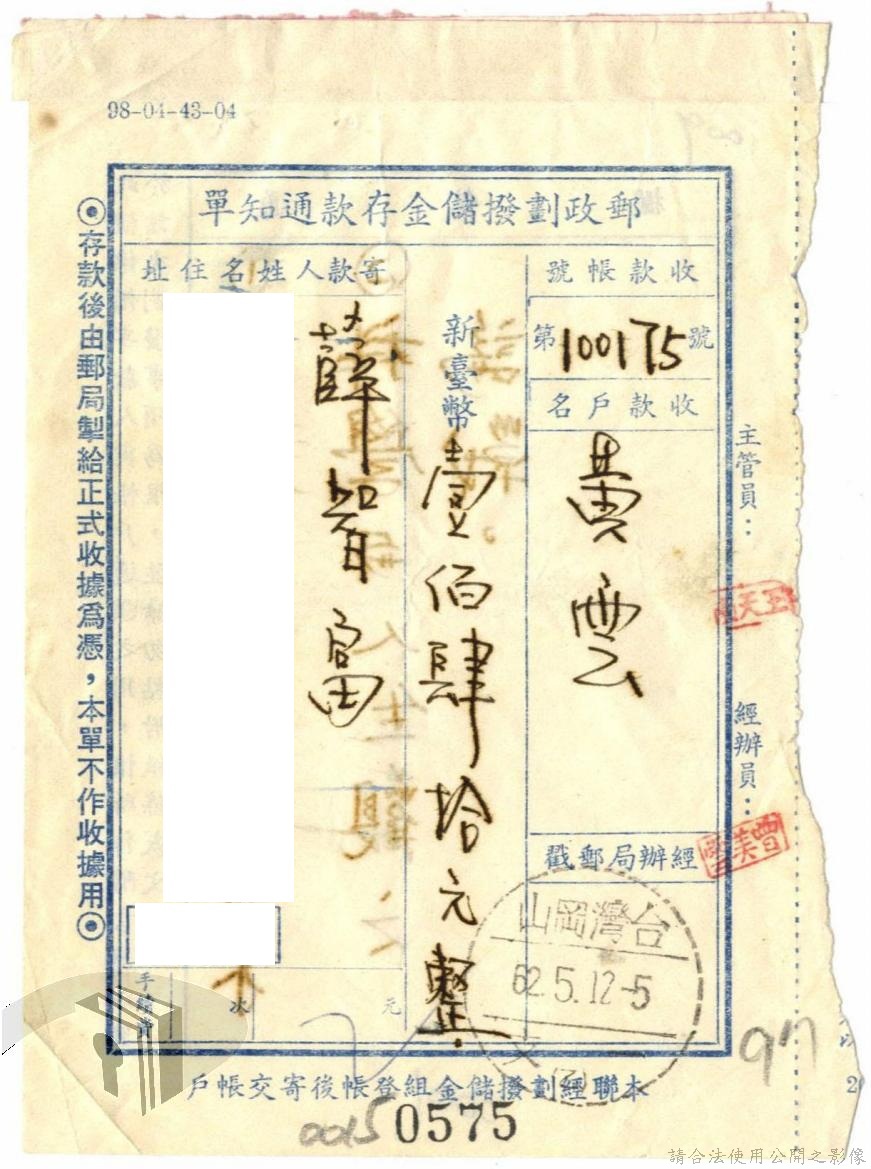 98-04-43-04
郵政劃撥儲金存款通知單
收款帳號
第100175號
收款戶名
黃雲
經辦局郵戳
台灣岡山
62.5.12-5
新臺幣壹佰肆拾元整
元
寄款人姓名住址
薛智富
手續費
主管員：
經辦員：
曾美雲
⊙存款後由郵局掣給正式收據爲憑，本單不作收據用⊙
本聯經劃撥儲金組登帳後寄交帳戶
0015
0575
97
請合法使用公開之影像